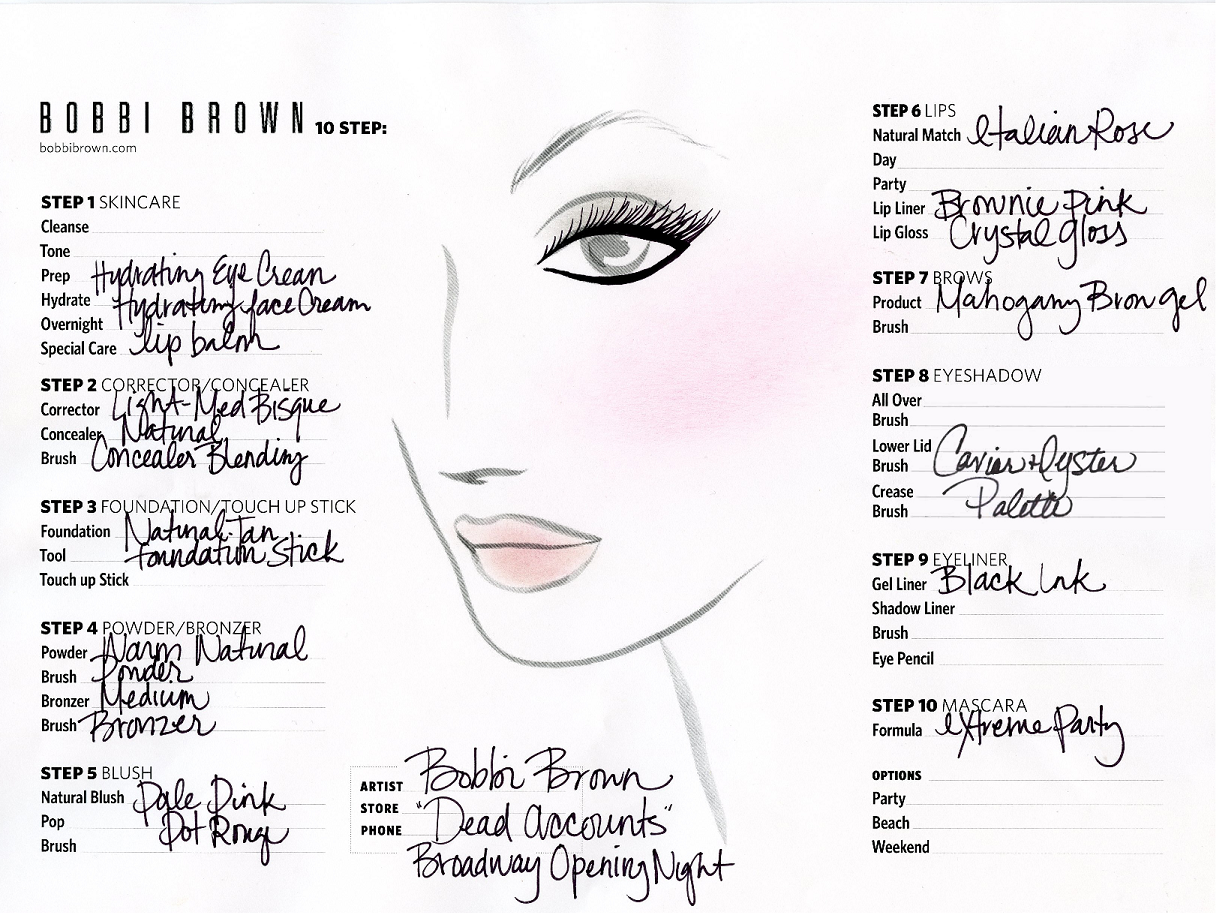 BOBBI BROWN 10 STEP:
bobbibrown.com
STEP 1 SKINCARE
Cleanse
Tone
Prep Hydrating Eye Cream
Hydrate Hydrating face Cream
Overnight
Special Care lip balm
STEP 2 CORRECTOR/CONCEALER
Corrector Light-Med Bisque
Concealer Natural
Brush Concealer Blending
STEP 3 FOUNDATION/TOUCH UP STICK
Foundation Natural Tan
Tool foundation Stick
Touch up Stick
STEP 4 POWDER/BRONZER
Powder Warm Natural
Brush Powder
Bronzer Medium
Brush Bronzer
STEP 5 BLUSH
Natural Blush Pale Pink
Pop Pot Rouge
Brush
ARTIST Bobbi Brown
STORE "Dead Accounts"
PHONE Broadway Opening Night
STEP 6 LIPS
Natural Match Italian Rose
Day
Party
Lip Liner Brownie Pink
Lip Gloss Crystal gloss
STEP 7 BROWS
Product Mahogany Brow gel
Brush
STEP 8 EYESHADOW
All Over
Brush
Lower Lid Caviar + Oyster
Brush
Crease Palette
Brush
STEP 9 EYELINER
Gel Liner Black Ink
Shadow Liner
Brush
Eye Pencil
STEP 10 MASCARA
Formula eXtreme Party
OPTIONS
Party
Beach
Weekend